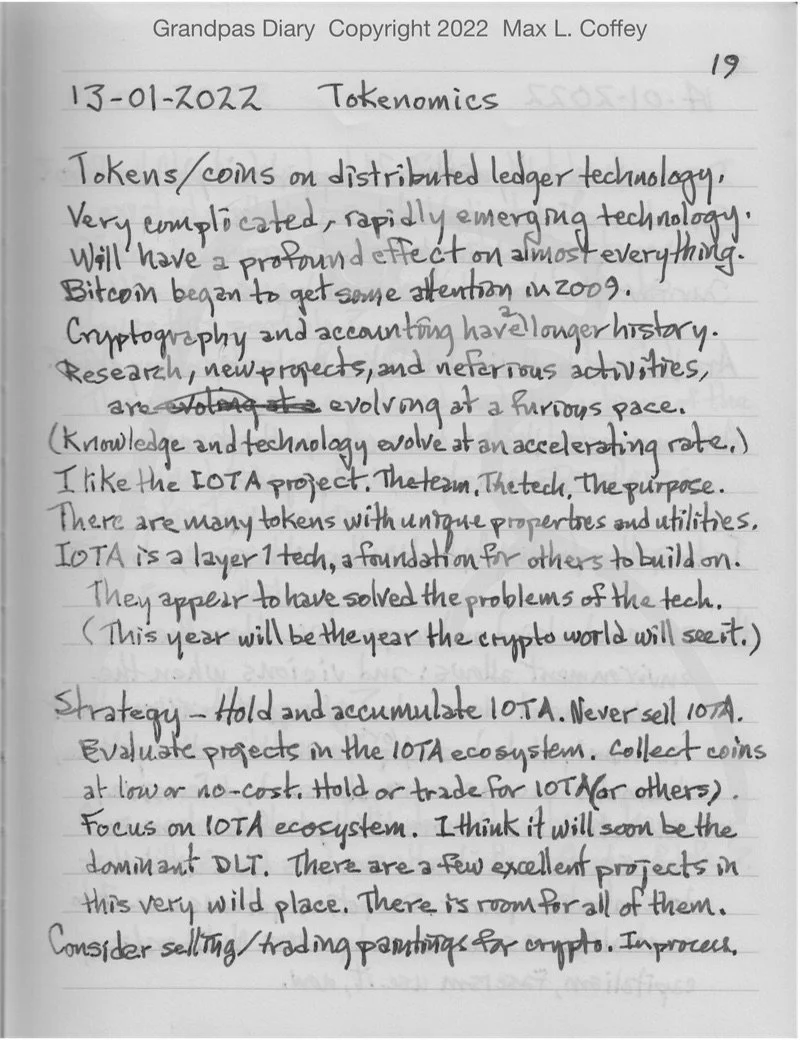 Grandpas Diary Copyright 2022 Max L. Coffey
19
13-01-2022 Tokenomics
Tokens/coins on distributed ledger technology.
Very complicated, rapidly emerging technology.
Will have a profound effect on almost everything.
Bitcoin began to get some attention in 2009.
Cryptography and accounting have longer history.
Research, new projects, and neferious activities,
are evolving at a furious pace.
(Knowledge and technology evolve at an accelerating rate.)
I like the IOTA project. The team, The tech, The purpose.
There are many tokens with unique properties and utilities.
IOTA is a layer 1 tech, a foundation for others to build on.
They appear to have solved the problems of the tech.
(This year will be the year the crypto world will see it.)
Strategy - Hold and accumulate IOTA. Never sell IOTA.
Evaluate projects in the IOTA ecosystem. Collect coins
at low or no-cost. Hold or trade for IOTA (or others).
Focus on IOTA ecosystem. I think it will soon be the
dominant DLT. There are a few excellent projects in
this very wild place. There is room for all of them.
Consider selling/trading paintings for crypto. In process.